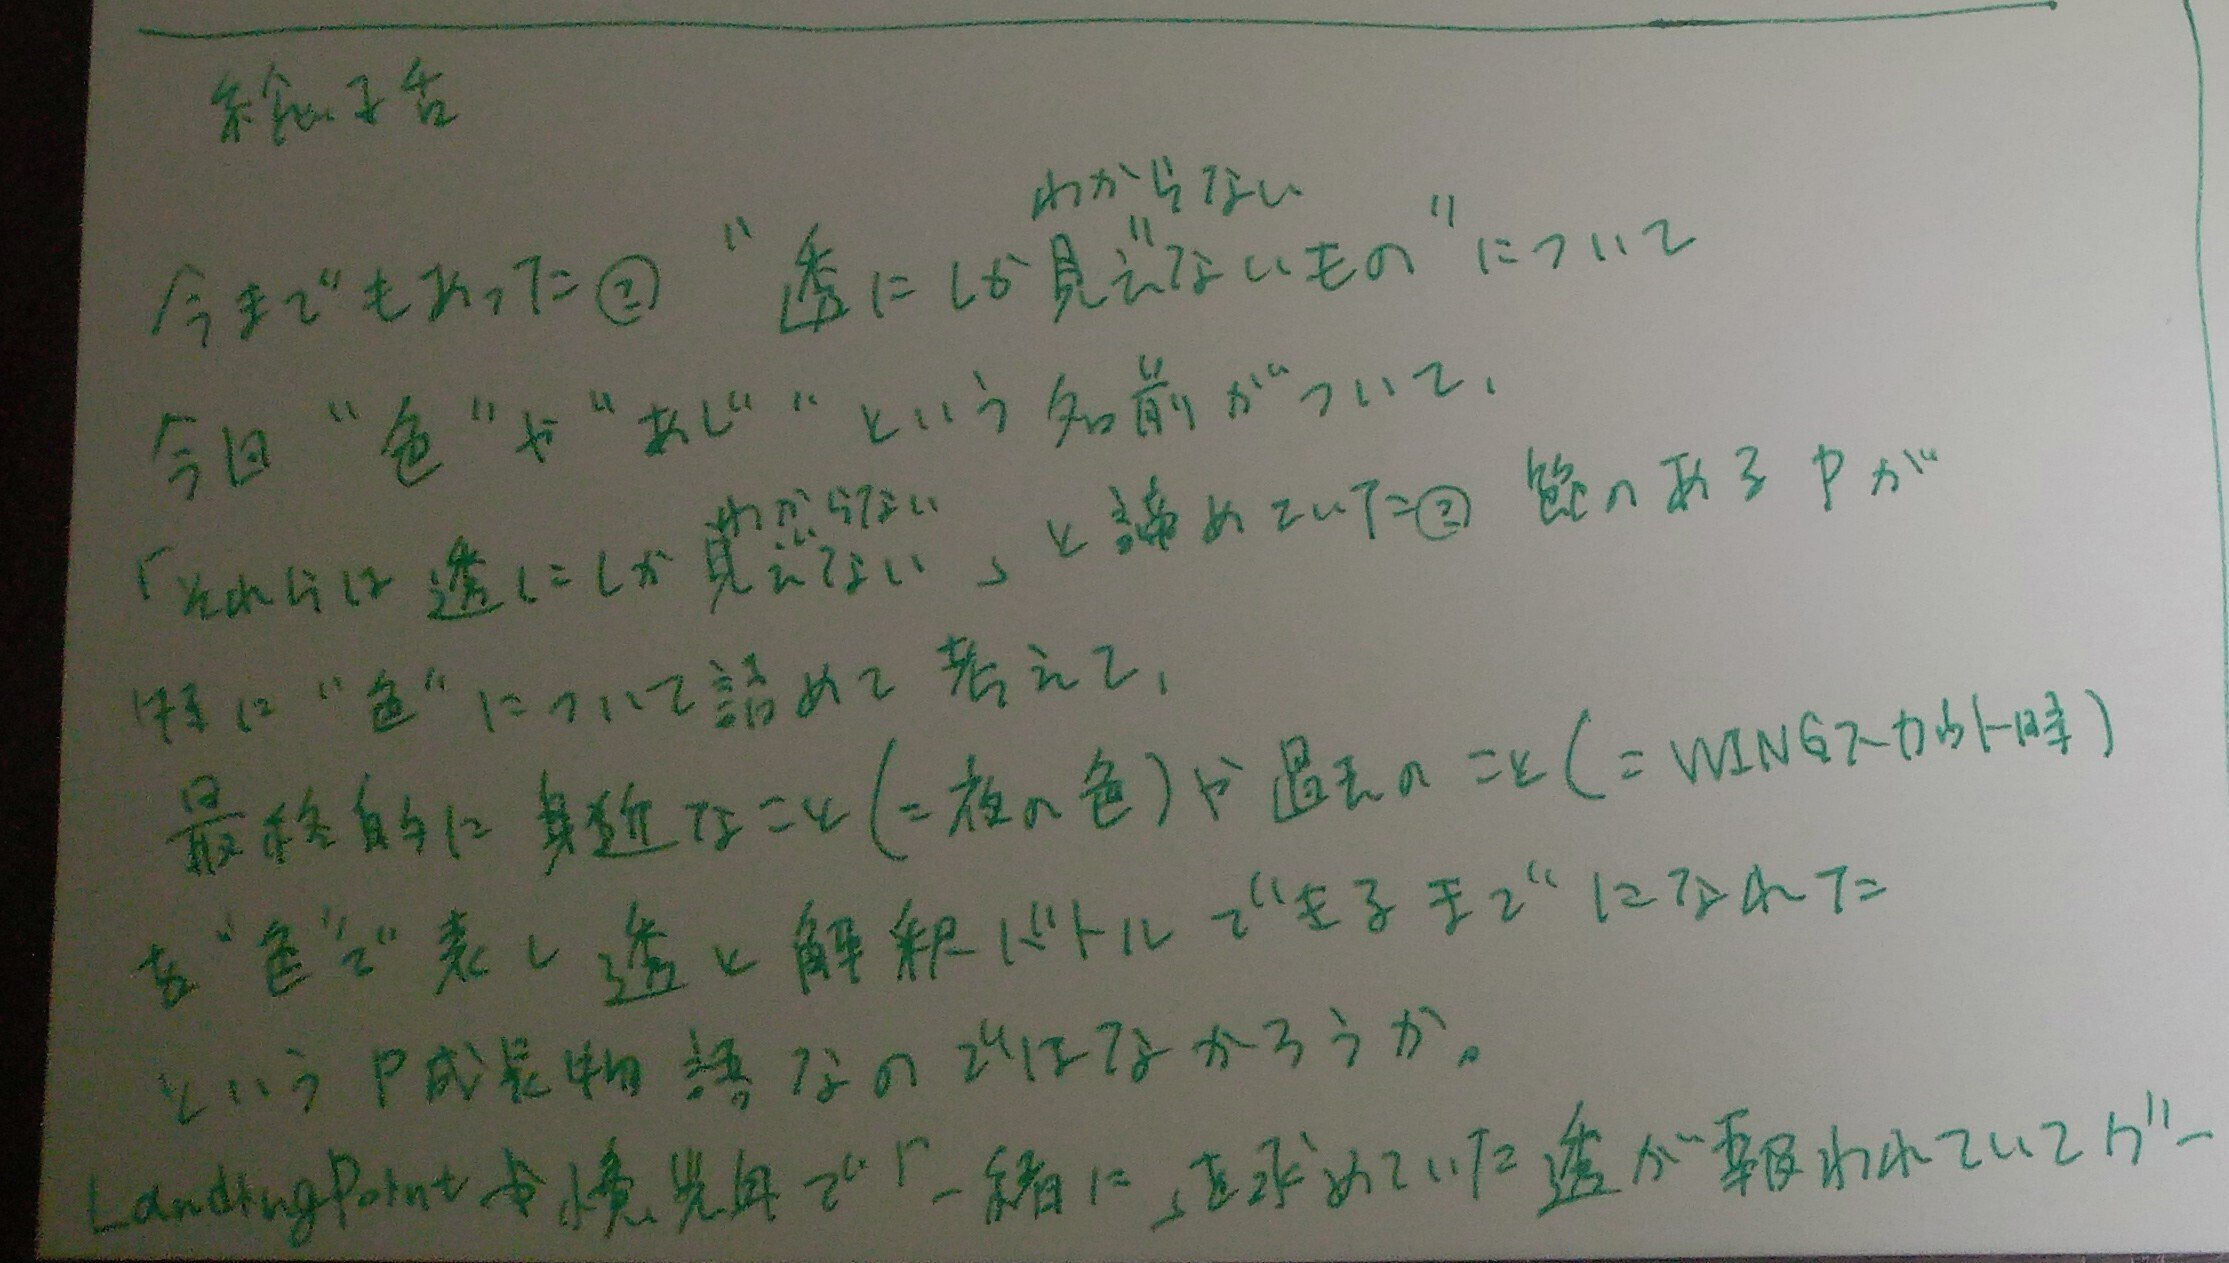 総括
わからない
今まであった② "透にしか見えないもの"について
今回"色"や"あじ"という名前がついて、
わからない
「それらは透にしか見えない」と諦めていた② 節のあるPが
特に"色"について詰めて考えて、
最終的に身近なこと(=夜の色)や過去のこと(=WINGスカウト時)
を"色"で表し透と解釈バトルできるまでになれた
というP成長物語なのではなかろうか。
LandingPointや憶光年で「一緒に」を求めていた透が報われていてグー